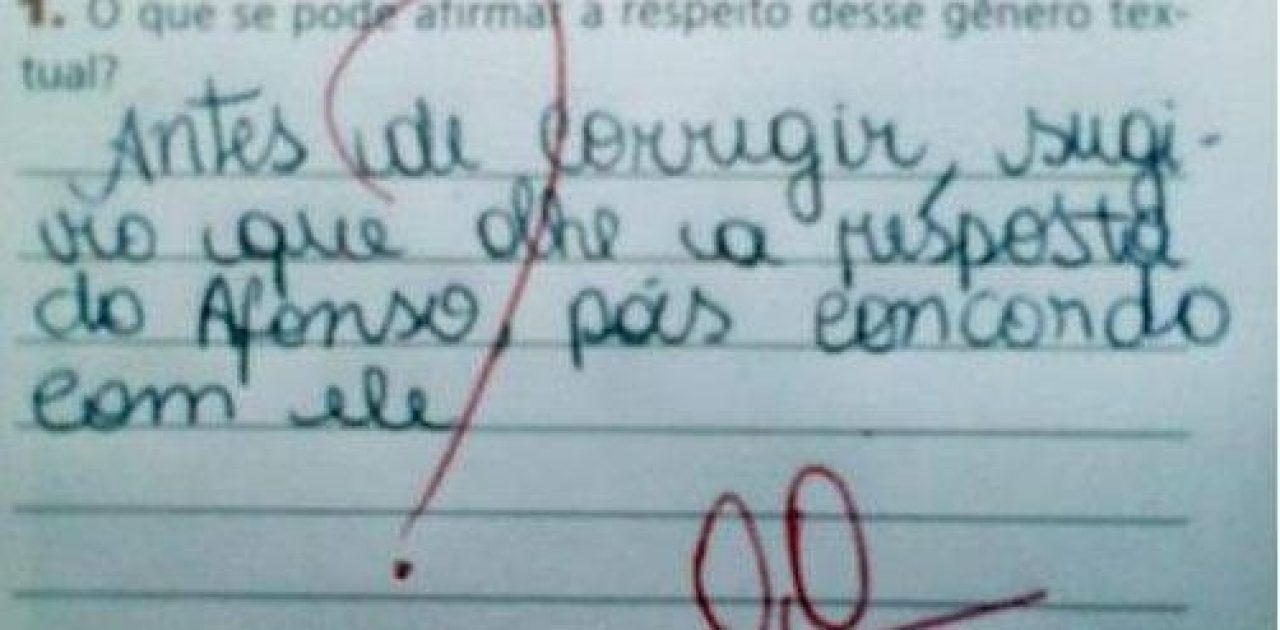 1. O que se pode afirmar a respeito desse gênero tex-
tual?
Antes de corrigir, sugi-
ro que olhe a résposta
do Afonso, póis concordo
com ele
?
0,0